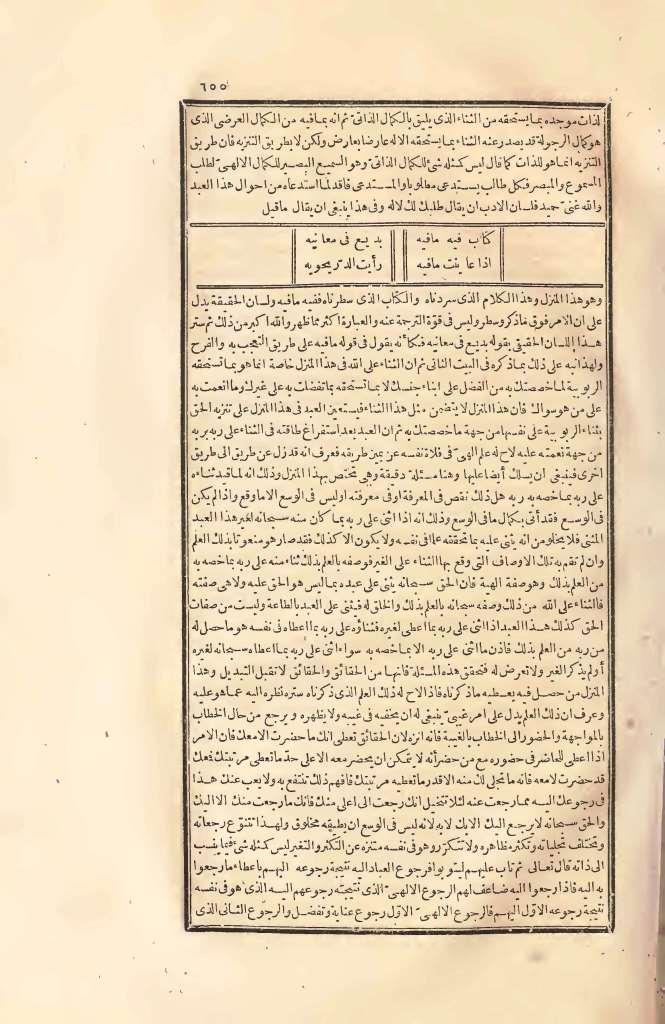 ٦٥٥
لذات موجده بما يستحقه من الثناء الذي يليق بالكمال الذاتي ثم انه بما فيه من الكمال العرضي الذي
هو كمال الرجولة قد يصدر عنه الثناء بما يستحقه الاله عارضا بعارض ولكن لا بطريق التنزيه فان طريق
التنزيه انما هو للذات كما قال ليس كمثله شئ للكمال الذاتي وهو السميع البصير للكمال الالهي لطلب
المسموع والمبصر فكل طالب يستدعي مطلوبا والمستدعي فاقد لما استدعاه من احوال هذا العبد
والله غني حميد فلسان الادب ان يقال طلبك لك لا له وفي هذا ينبغي ان يقال ما قيل
كتاب فيه ما فيه بديع في معانيه
اذا عاينت ما فيه رأيت الدر يحويه
وهو هذا المنزل وهذا الكلام الذي سردناه والكتاب الذي سطرناه ففيه ما فيه ولسان الحقيقة يدل
على ان الامر فوق ما ذكر وسطر وليس في قوة الترجمة عنه والعبارة اكثر مما ظهر والله اكبر من ذلك ثم ستر
هذا اللسان الحقيقي بقوله بديع في معانيه فكأنه يقول في قوله ما فيه على طريق التعجب به والفرح
ولهذا نبه على ذلك بما ذكره في البيت الثاني ثم ان الثناء على الله في هذا المنزل خاصة انما هو بما تستحقه
الربوبية لما خصصتك به من الفضل على ابناء جنسك لا بما تستحقه بما تفضلت به على غيرك وما انعمت به
على من هو سواك فان هذا المنزل لا يتضمن مثل هذا الثناء فيستعين العبد في هذا المنزل على تنزيه الحق
بثناء الربوبية على نفسها من جهة ما خصصتك به ثم ان العبد بعد استفراغ طاقته في الثناء على ربه بربه
من جهة نعمته عليه لاح له علم الهي في فلاة نفسه عن يمين طريقه فعرف انه قد زل عن طريق الى طريق
اخرى فينبغي ان يسلك أيضا عليها وهنا مسئلة دقيقة وهي تختص بهذا المنزل وذلك انه لما قيد ثناءه
على ربه بما خصه به ربه هل ذلك نقص في المعرفة او في معرفته او ليس في الوسع الا ما وقع واذا لم يكن
في الوسع فقد أتى بكمال ما في الوسع وذلك انه اذا اثنى على ربه بما كان منه سبحانه لغير هذا العبد
المثني فلا يخلو من انه يثني عليه بما تحققته علما في نفسه ولا يكون الا كذلك فقد صار هو منعوتا بذلك العلم
وان لم تقم به تلك الاوصاف التي وقع بها الثناء على الغير فوصفه بالعلم بذلك ثناء منه على ربه بما خصه به
من العلم بذلك وهو صفة الهية فان الحق سبحانه يثني على عبده بما ليس هو الحق عليه ولا هي صفته
فالثناء على الله من ذلك وصفه سبحانه بالعلم بذلك والخلق له فيثني على العبد بالطاعة وليست من صفات
الحق كذلك هذا العبد اذا اثنى على ربه بما اعطى لغيره فثناؤه على ربه بما اعطاه في نفسه هو ما حصل له
من ربه من العلم بذلك فاذن ما اثنى على ربه الا بما خصه به سواء اثنى على ربه بما اعطاه سبحانه لغيره
أو لم يذكر الغير ولا تعرض له فتحقق هذه المسئلة فانها من الحقائق والحقائق لا تقبل التبديل وهذا
المنزل من حصل فيه يعطيه ما ذكرناه فاذا لاح له ذلك العلم الذي ذكرناه ستره نظره اليه عما هو عليه
وعرف ان ذلك العلم يدل على امر غيبي ينبغي له ان يخفيه في غيبه ولا يظهره و يرجع من حال الخطاب
بالمواجهة والحضور الى الخطاب بالغيبة فانه انزه لان الحقائق تعطى انك ما حضرت الا معك فان الامر
اذا اعطى للحاضر في حضوره مع من حضر أنه لا يتمكن ان يحضر معه الا على حد ما تعطى مرتبتك فمعك
قد حضرت لا معه فانه ما تجلى لك منه الا قدر ما تعطيه مرتبتك فافهم ذلك تنتفع به ولا يعب عنك هذا
في رجوعك اليه مما رجعت عنه لئلا تتخيل انك رجعت الى اعلى منك فانك ما رجعت منك الا اليك
والحق سبحانه لا يرجع اليك الا بك لا به لانه ليس في الوسع ان يطيقه مخلوق ولهذا تتنوع رجعاته
وتختلف تجلياته وتكثر مظاهره ولا تتكرر وهو في نفسه منزه عن التكثر والتغير ليس كمثله شئ فيما ينسب
الى ذاته قال تعالى ثم تاب عليهم ليتوبوا فرجوع العباد اليه نتيجة رجوعه اليهم باعطاء ما رجعوا
به اليه فاذا رجعوا اليه ضاعف لهم الرجوع الالهي الذي نتيجته رجوعهم اليه الذي هو في نفسه
نتيجة رجوعه الاول اليهم فالرجوع الالهي الاول رجوع عناية وتفضل والرجوع الثاني الذي